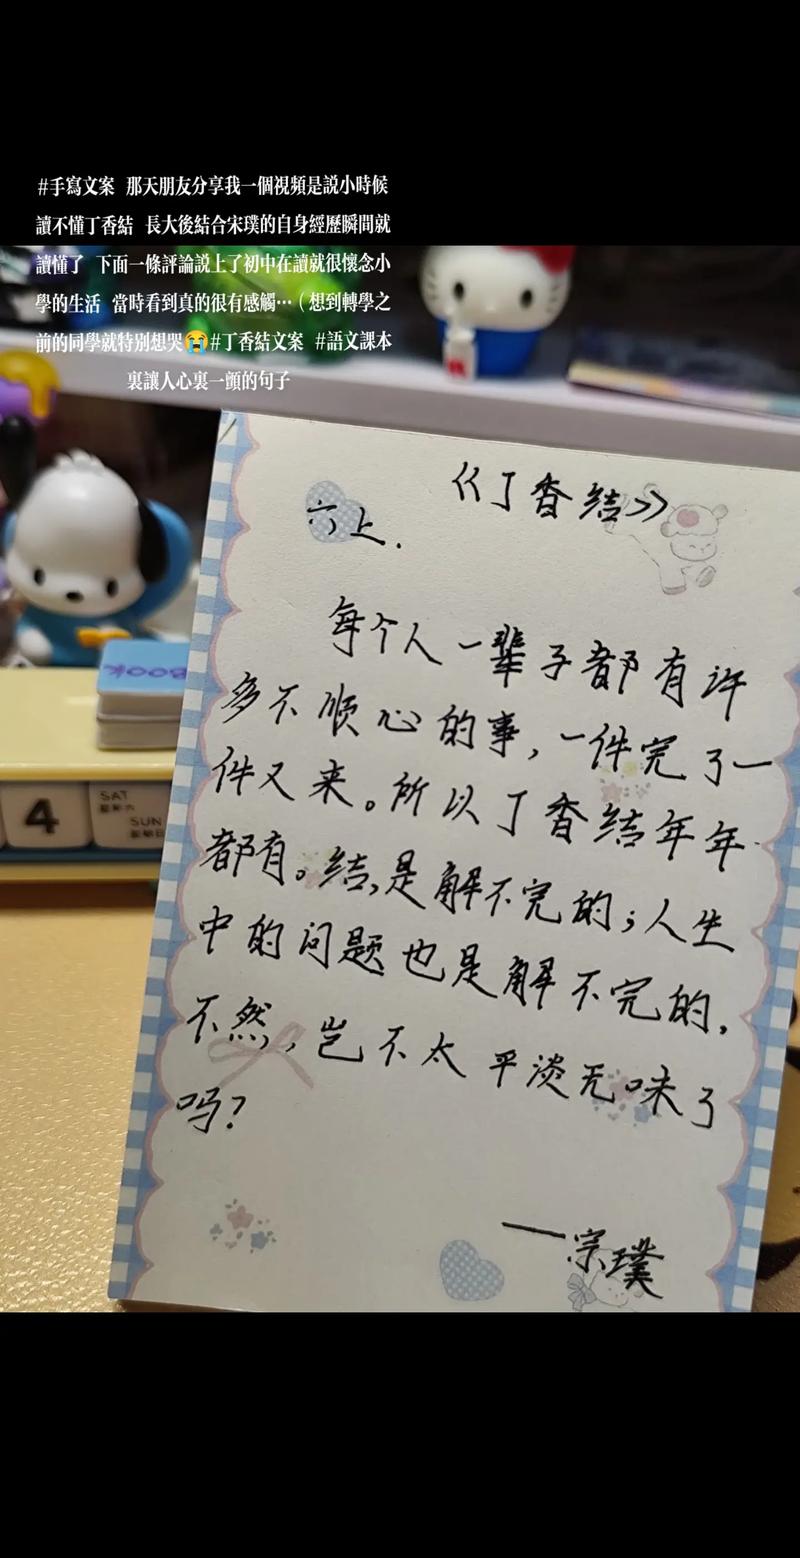 #手寫文案 那天朋友分享我一個視頻是説小時候
讀不懂丁香結 長大後結合宋璞的自身經歷瞬間就
讀懂了 下面一條評論説上了初中在讀就很懷念小
學的生活 當時看到真的很有感觸…（想到轉學之
前的同學就特别想哭😭#丁香結文案 #語文課本
裏讓人心裏一顫的句子
《丁香结》
六上.
每个人一辈子都有许
多不顺心的事,一件完了一
件又来。所以丁香结年年
都有。结,是解不完的;人生
中的问题也是解不完的,
不然,岂不太平淡无味了
吗?
——宗璞
BOOK
4
SAT
星期六
SUN
星期日